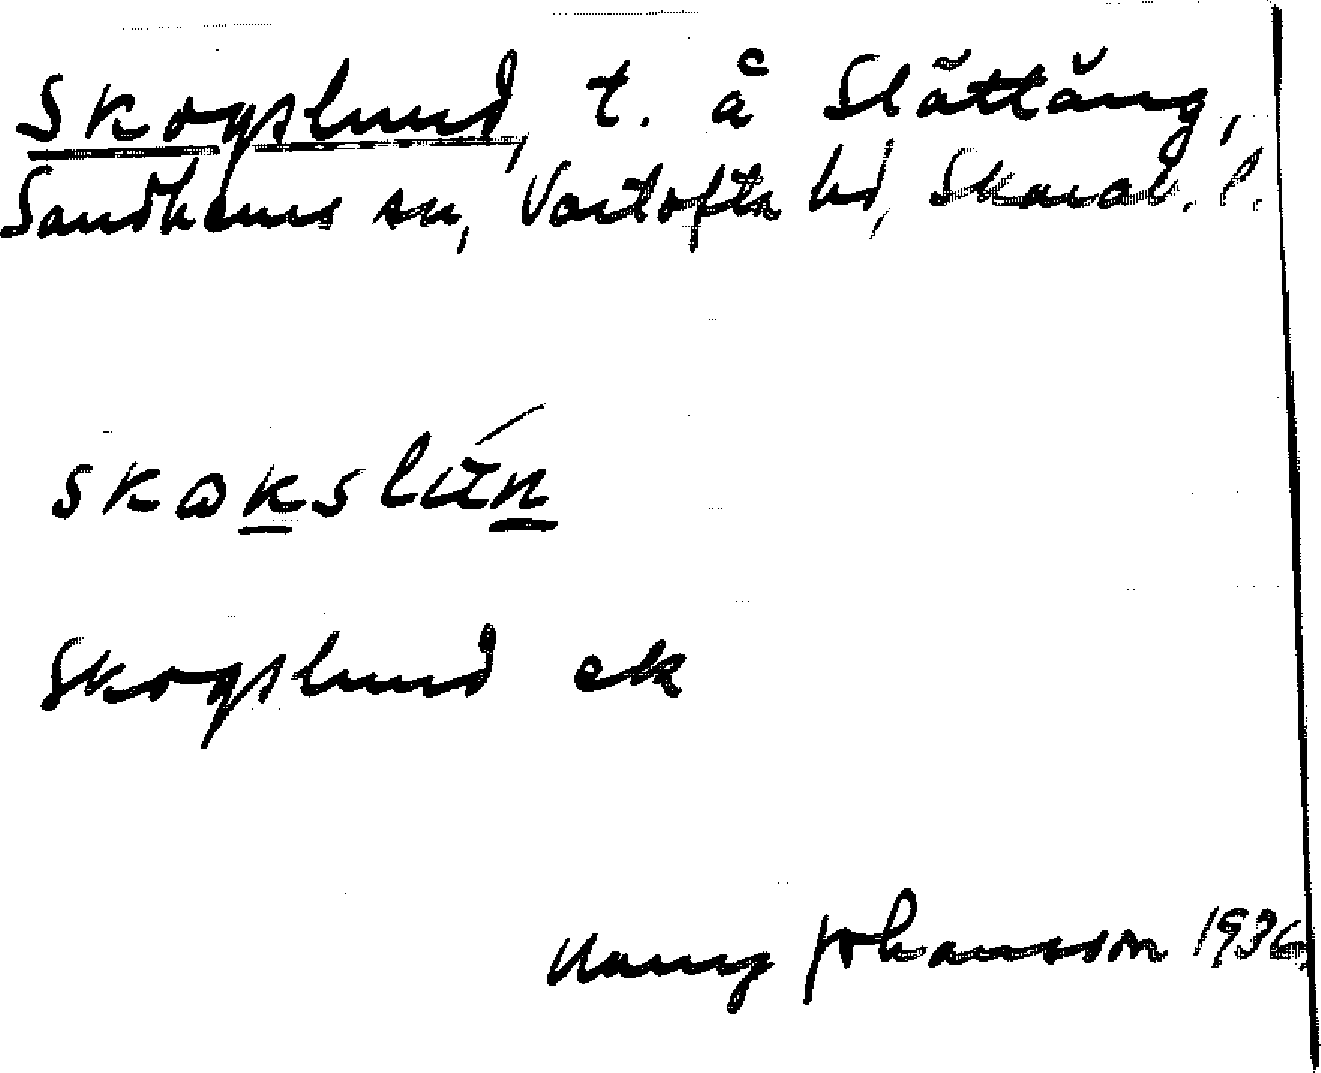 Skogslund, t. å Slättäng,
Sandhems sn, Vartofta hd, Skarab. l.
skɷkslún
Skogslund ek
Nanny Johansson 1936